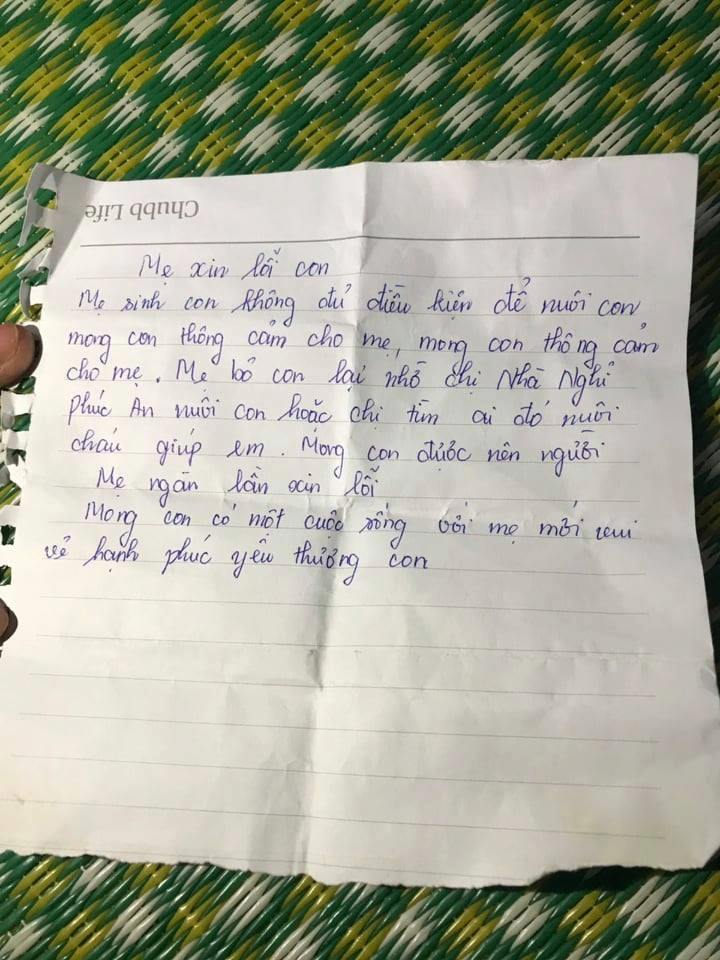 Chubb Life
Mẹ xin lỗi con
Mẹ sinh con không đủ điều kiện để nuôi con
mong con thông cảm cho mẹ, mong con thông cảm
cho mẹ. Mẹ bỏ con lại nhờ chị Nhà Nghỉ
phúc An nuôi con hoặc chị tìm ai đó nuôi
cháu giúp em. Mong con được nên người
Mẹ ngàn lần xin lỗi
Mong con có một cuộc sống với mẹ mới vui
vẻ hạnh phúc yêu thương con